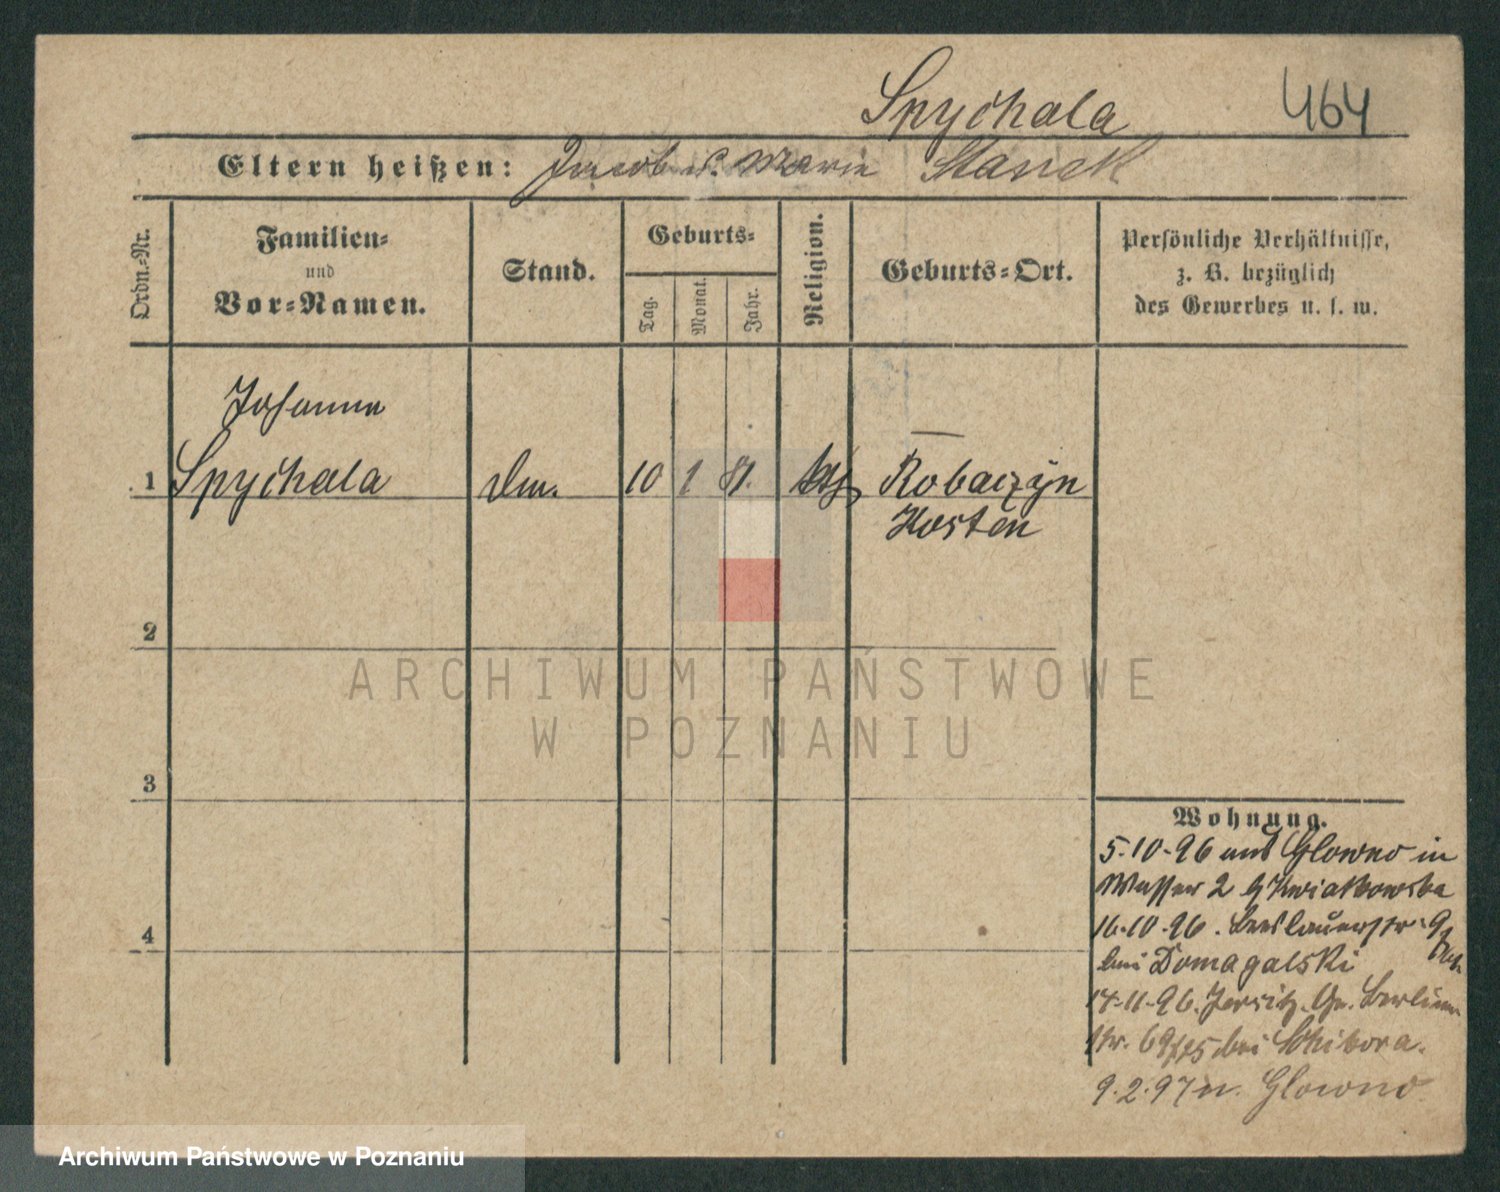 Spychala 464
Eltern heißen: Jacob u. Marie Stanek
Ordn.-Nr.
Familien- und Vor-Namen.
Stand.
Geburts-
Tag.
Monat.
Jahr.
Religion.
Geburts-Ort.
Persönliche Verhältnisse,
z. B. bezüglich
des Gewerbes u. s. w.
Johanna
1 Spychala 10 1 Robaczyn
Kosten
2
ARCHIWUM PAŃSTWOWE
W POZNANIU
3
Wohnung.
5.10.96 aus Glowno in
Wasser 2 Kwiatkowska
4
16.10.96. Breslauerstr. 9
bei Domagalski
14.11.96. Jersitz. Gr. Berliner
Str. bei Schibora.
9.2.97 n. Glowno
Archiwum Państwowe w Poznaniu